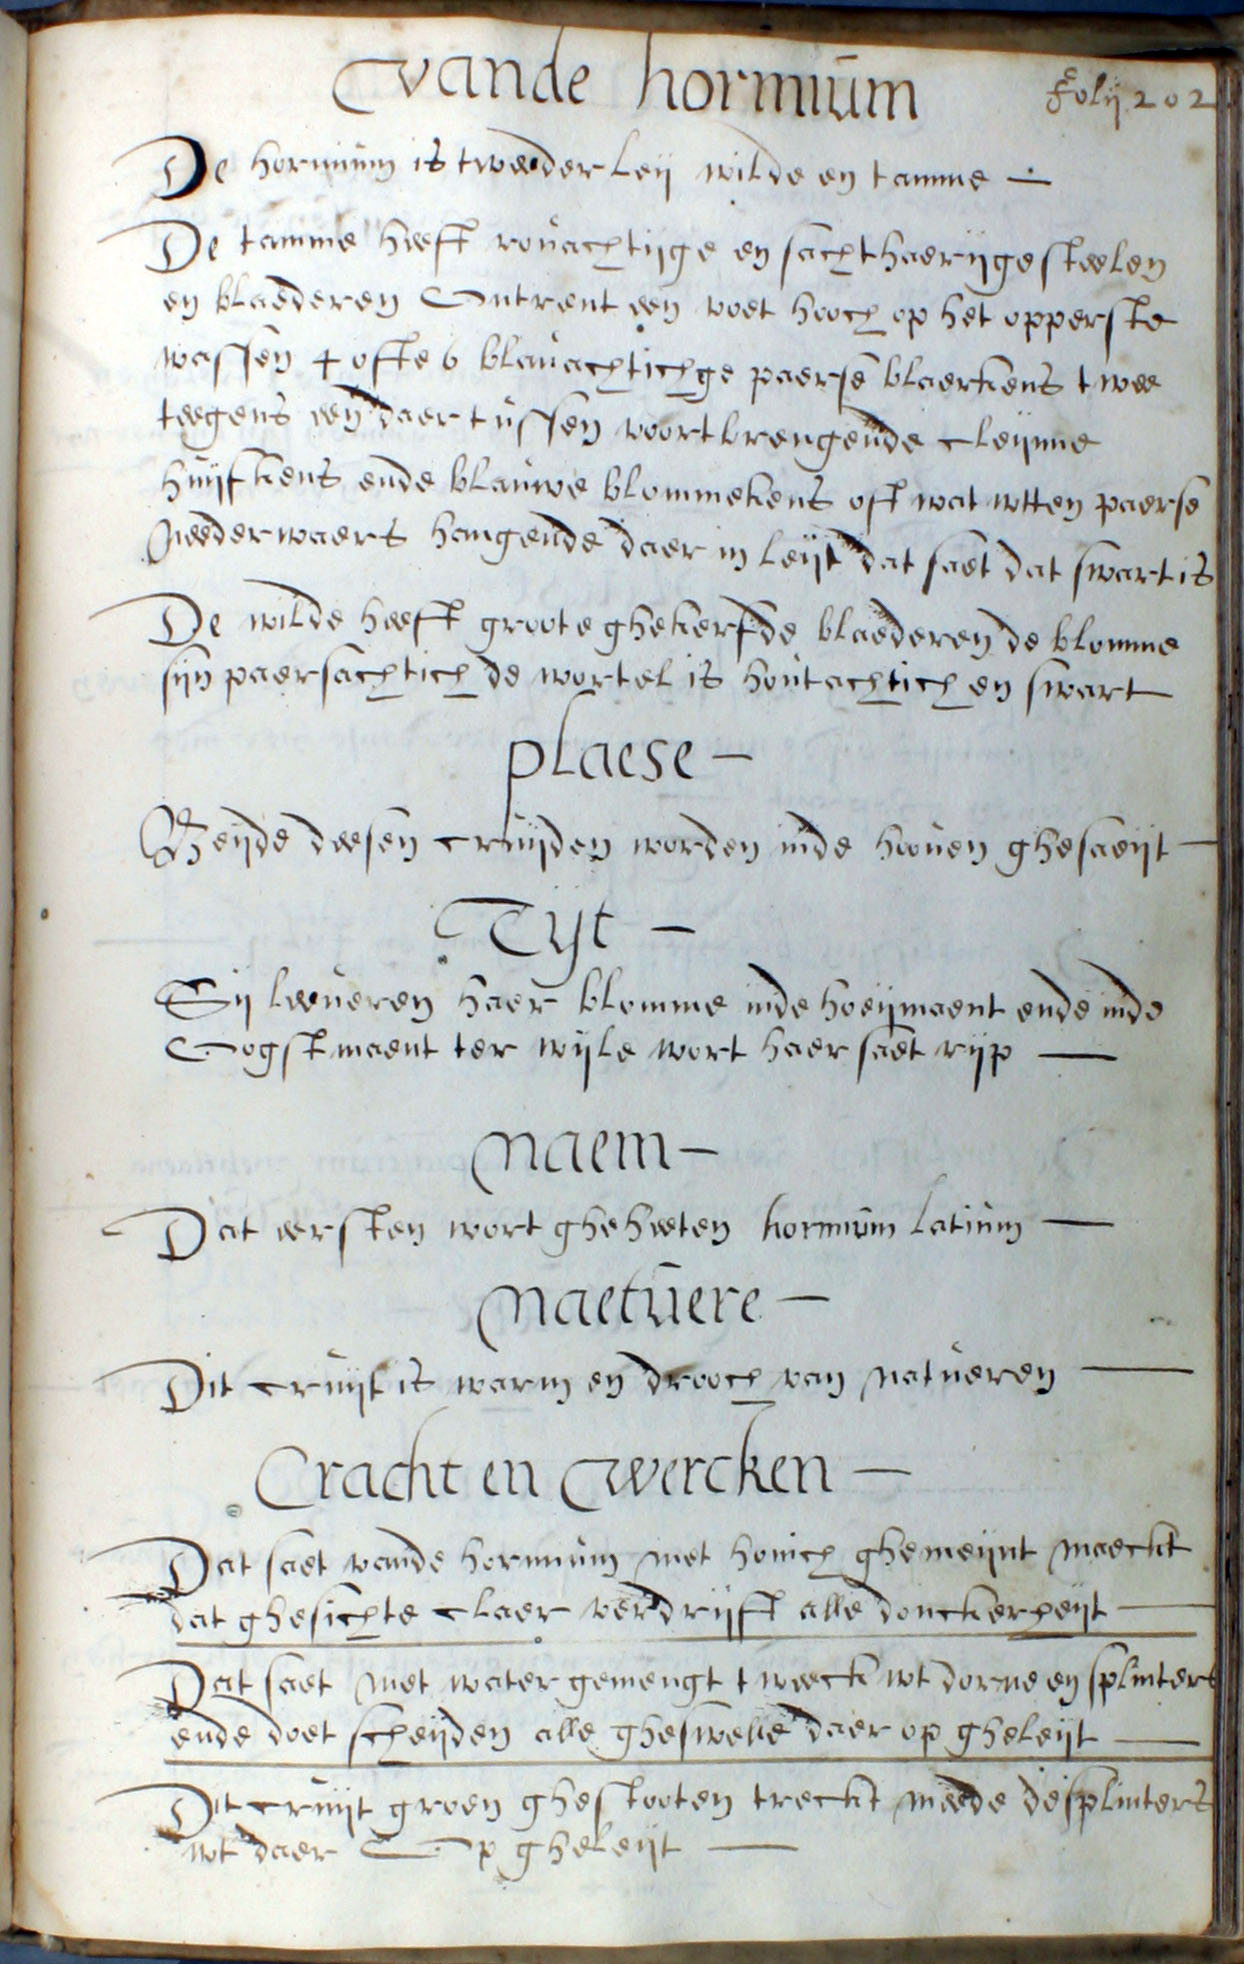 vande hormium
Folij 202
De hormium is tweederleij wilde en tamme
De tamme heeft rouachtijge en sachthaerijge steelen
en blaederen Ontrent een voet hooch op het opperste
wassen 4 ofte 6 blauachtichge paerse blaerkens twee
teegens een daer tussen voortbrengende cleijnne
huijfkens ende blauwe blommekens oft wat wtten paerse
Neederwaerts hangende daer in leijt dat saet dat swart is
De wilde heeft groote ghekerfde blaederen de blomme
sijn paersachtich de wortel is houtachtich en swart
plaese
Beijde deesen cruijden worden inde hoouen ghesaeijt
Tijt
Sij leeueren haer blomme inde hoeijmaent ende inde
Oogstmaent ter wijle wort haer saet rijp
Naem
Dat eersten wort gheheeten hormium Latium
Naetuere
Dit cruijt is warm en drooch van Natueren
Cracht en Wercken
Dat saet vande hormium met honich ghemeijnt maeckt
dat ghesichte claer verdrijft alle donckerheijt
Dat saet met water gemengt tweeckt wt dorne en splinters
ende doet scheijden alle gheswelle daer op gheleijt
Dit cruijt groen ghestooten treckt meede de splinters
wt daer Op gheleijt